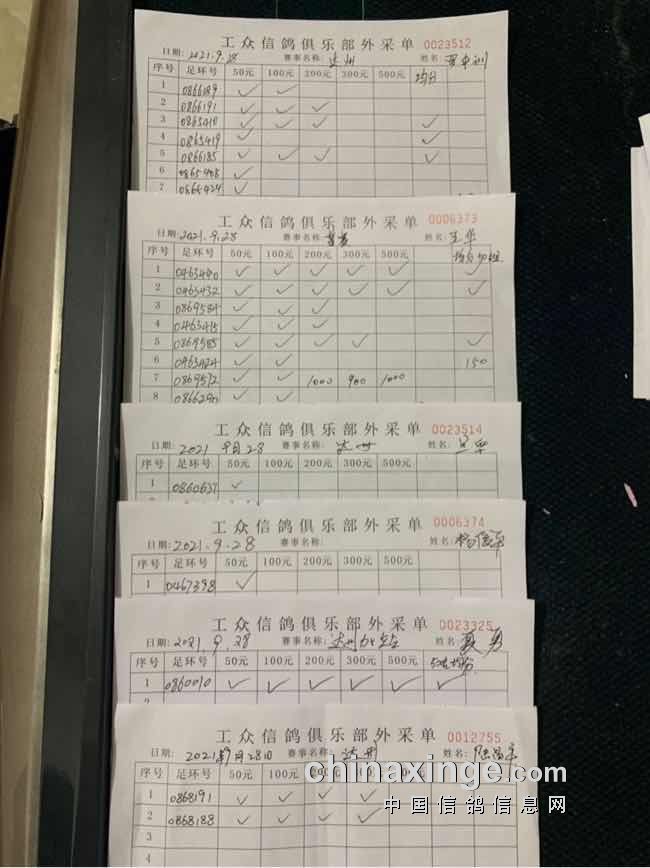 工众信鸽俱乐部外采单 0023512
日期: 2021.9.28 赛事名称: 达州 姓名:
序号 足环号 50元 100元 200元 300元 500元 均分
1 0866189 ✓ ✓
2 0866191 ✓ ✓ ✓
3 0865410 ✓ ✓ ✓ ✓
4 0865419 ✓ ✓
5 0866185 ✓ ✓ ✓ ✓
6 0865408 ✓
7 0865424 ✓
工众信鸽俱乐部外采单 0006373
日期: 2021.9.28 赛事名称: 姓名:
序号 足环号 50元 100元 200元 300元 500元
1 0463440 ✓ ✓ ✓ ✓ ✓ ✓
2 0463432 ✓ ✓ ✓ ✓ ✓ ✓
3 0869584 ✓ ✓ ✓
4 0463415 ✓ ✓ ✓
5 0869585 ✓ ✓ ✓ ✓ ✓
6 0463424 ✓ ✓ 150
7 0869572 ✓ ✓ 1000 900 1000
8 0866290 ✓ ✓
工众信鸽俱乐部外采单 0023514
日期: 2021 9月28 赛事名称: 达州 姓名:
序号 足环号 50元 100元 200元 300元 500元
1 0860637 ✓
工众信鸽俱乐部外采单 0006374
日期: 2021.9.28 赛事名称: 姓名:
序号 足环号 50元 100元 200元 300元 500元
1 0467398 ✓
工众信鸽俱乐部外采单 0023325
日期: 2021.9.28 赛事名称: 达州 姓名: 聂勇
序号 足环号 50元 100元 200元 300元 500元
1 0860010 ✓ ✓ ✓ ✓ ✓ ✓
2
工众信鸽俱乐部外采单 0012755
日期: 2021年9月28日 赛事名称: 达州 姓名:
序号 足环号 50元 100元 200元 300元 500元
1 0868191 ✓ ✓ ✓ ✓
2 0868188 ✓ ✓ ✓ ✓
3
4
chinaxinge.com
中国信鸽信息网